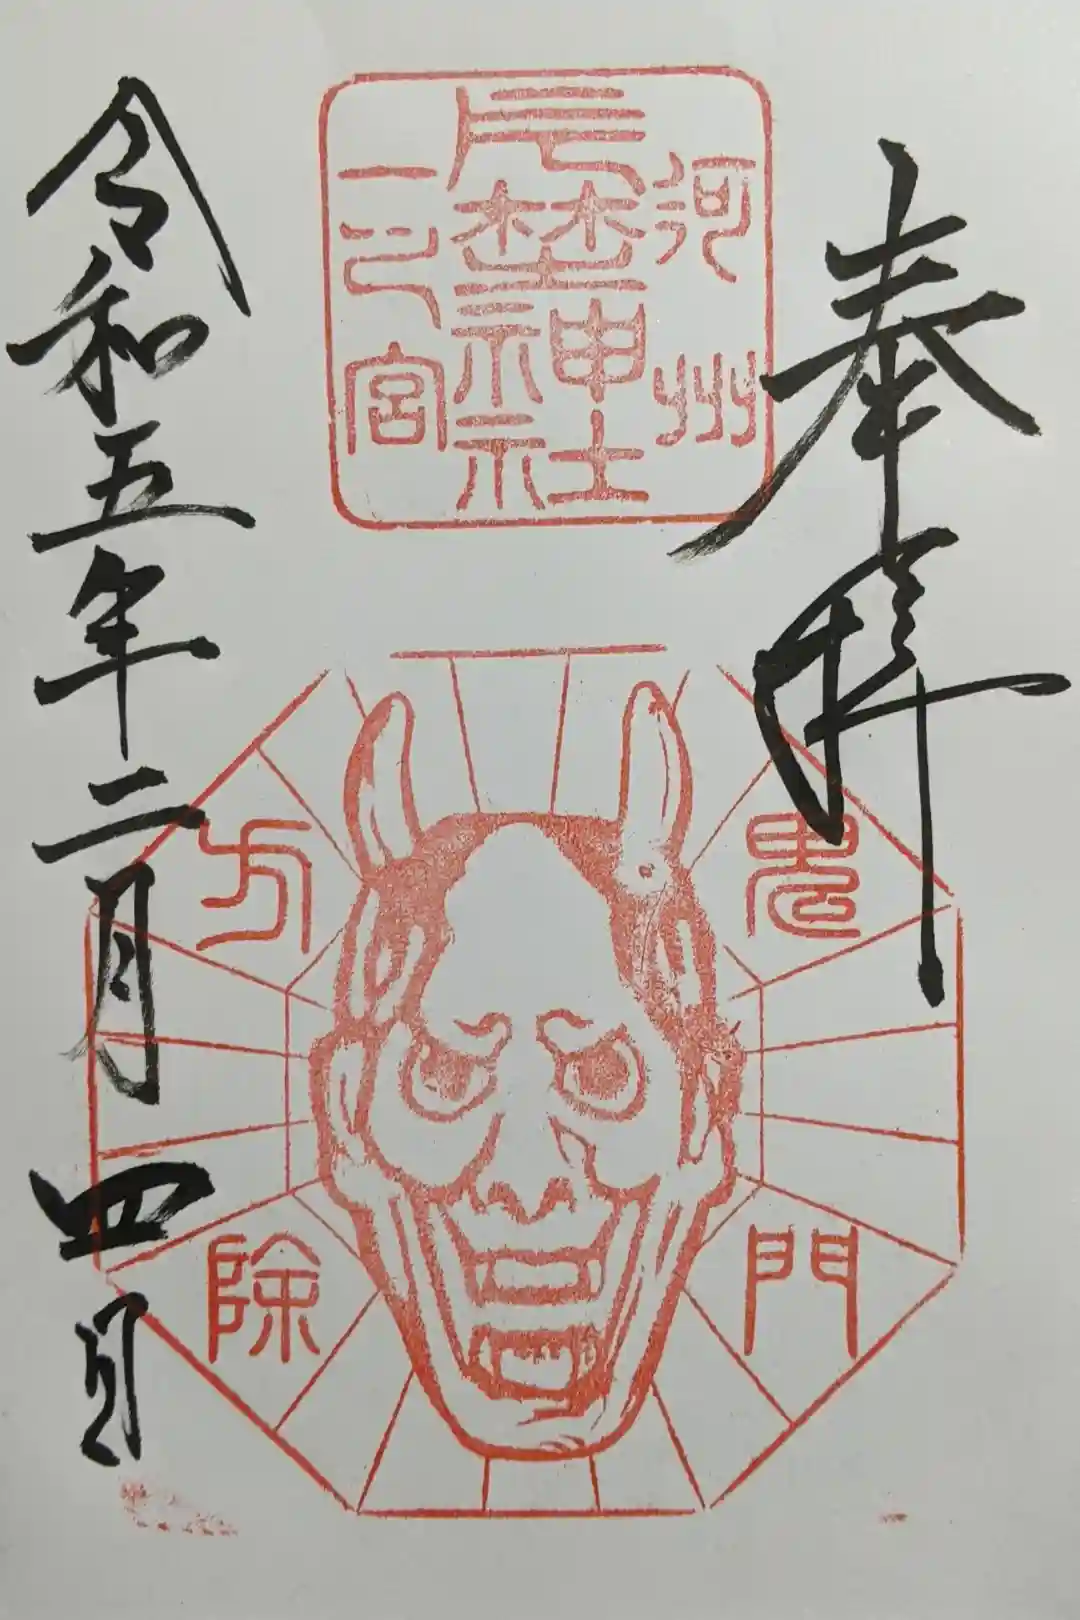 奉拝
河州
片埜神社
一之宮
鬼門
方除
令和五年二月四日